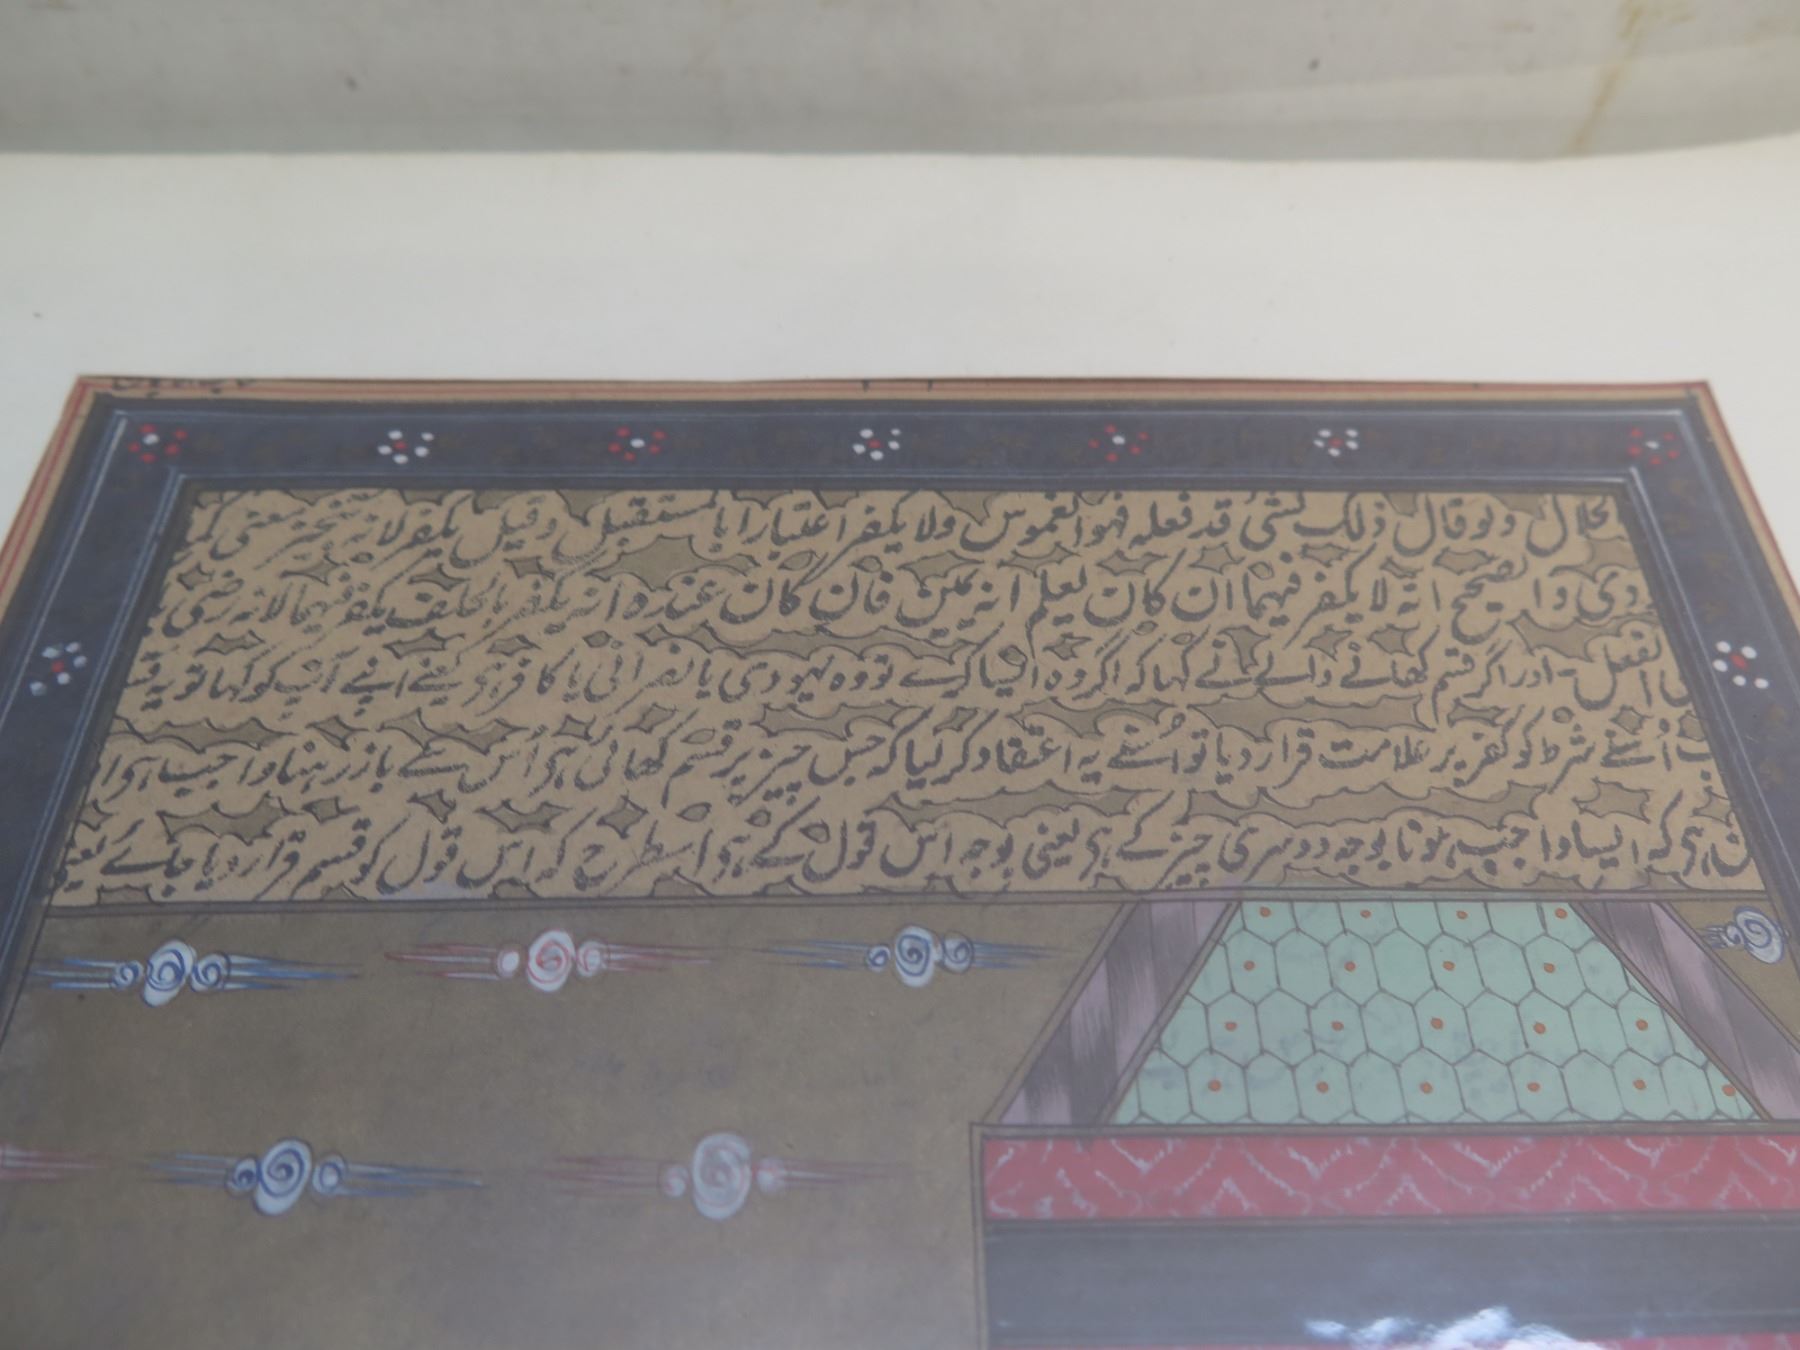 الحلال ولو قال ذلك لشئ قد فعله فهو الغموس ولا يكفر اعتبارا بالمستقبل وقيل يكفر لانه تنجيز معنى
والصحيح انه لا يكفر فيهما ان كان يعلم انه يمين فان كان عنده انه يكفر بالحلف يكفر فيهما لانه رضى
الفعل اور اگر قسم کھانے والے نے کہا کہ اگر وہ ایسا کرے تو وہ یہودی یا نصرانی یا کافر ہی یعنے اپنے آپ کو کہا تو یہ
اُسنے شرط کو کفر پر علامت قرار دیا تو اُسنے یہ اعتقاد کر لیا کہ جس چیز پر قسم کھائی ہی اُس سے باز رہنا واجب ہی
ہی کہ ایسا واجب ہونا بوجہ دوسری چیز کے ہی یعنی بوجہ اس قول کے ہی اسطرح کہ اس قول کو قسم قرار دیا جاے